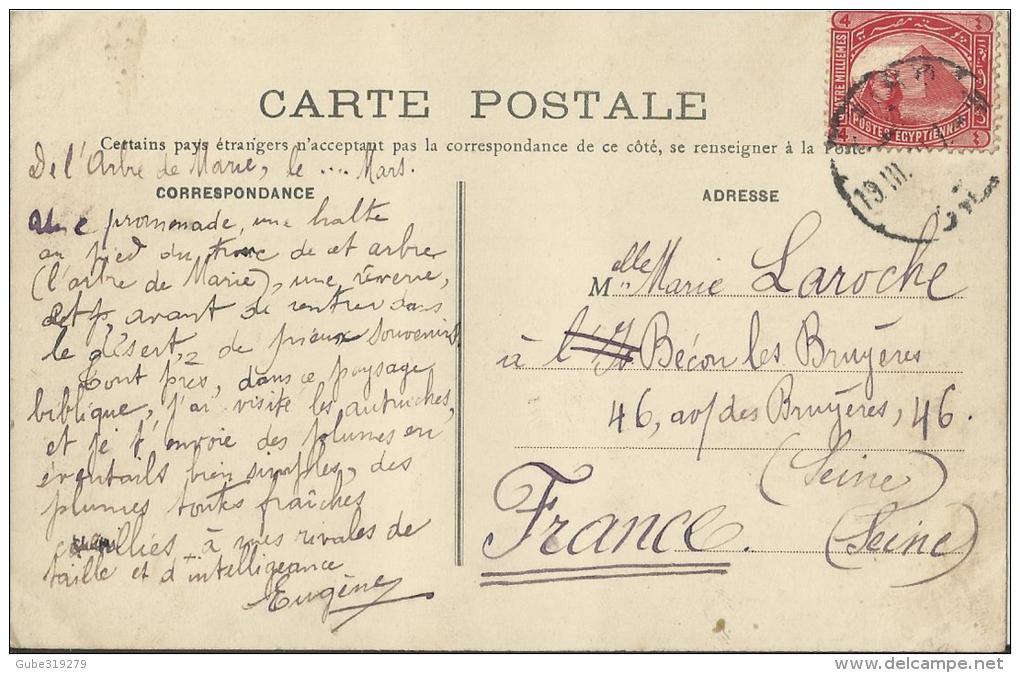 CARTE POSTALE
Certains pays étrangers n'acceptant pas la correspondance de ce côté, se renseigner à la Poste
De l'Arbre de Marie, le .... Mars.
CORRESPONDANCE
Une promenade, une halte
au pied du tronc de cet arbre
(l'arbre de Marie), une rêverie,
et, avant de rentrer dans
le désert, de pieux souvenirs
Tout près, dans ce paysage
biblique, j'ai visité les autruches,
et je t'envoie des plumes en
éventails bien simples, des
plumes toutes fraîches
cueillies à mes rivales de
taille et d'intelligeance
Eugène
ADRESSE
Melle Marie Laroche
à Bécon les Bruyères
46, av/ des Bruyères, 46.
(Seine)
France. (Seine)
4
QUATRE MILLIEMES
POSTES EGYPTIENNES
4
٤
٤
19 III.
Gube319279
delcampe.net